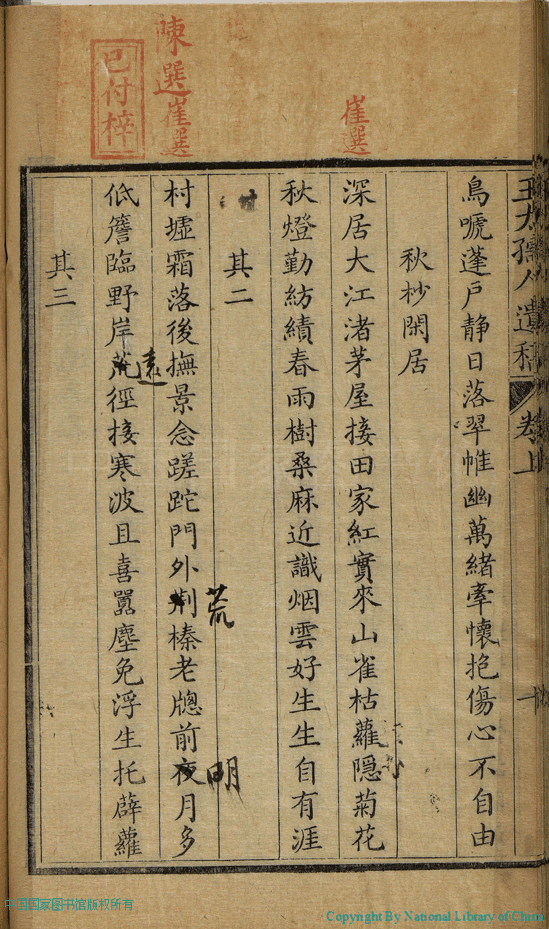 王太孺人遺稿 卷上 十
鳥嗁蓬戶静日落翠帷幽萬緒牽懷抱傷心不自由
秋杪閑居
深居大江渚茅屋接田家紅實來山雀枯蘿隱菊花
秋燈勤紡績春雨樹桑麻近識烟雲好生生自有涯
其二
村墟霜落後撫景念蹉跎門外荆榛老牕前夜月多
荒
明
低簷臨野岸荒徑接寒波且喜囂塵免浮生托薜蘿
遠
其三
崔選
陳選崔選
已付梓
中国国家图书馆版权所有
Copyright By National Library of China